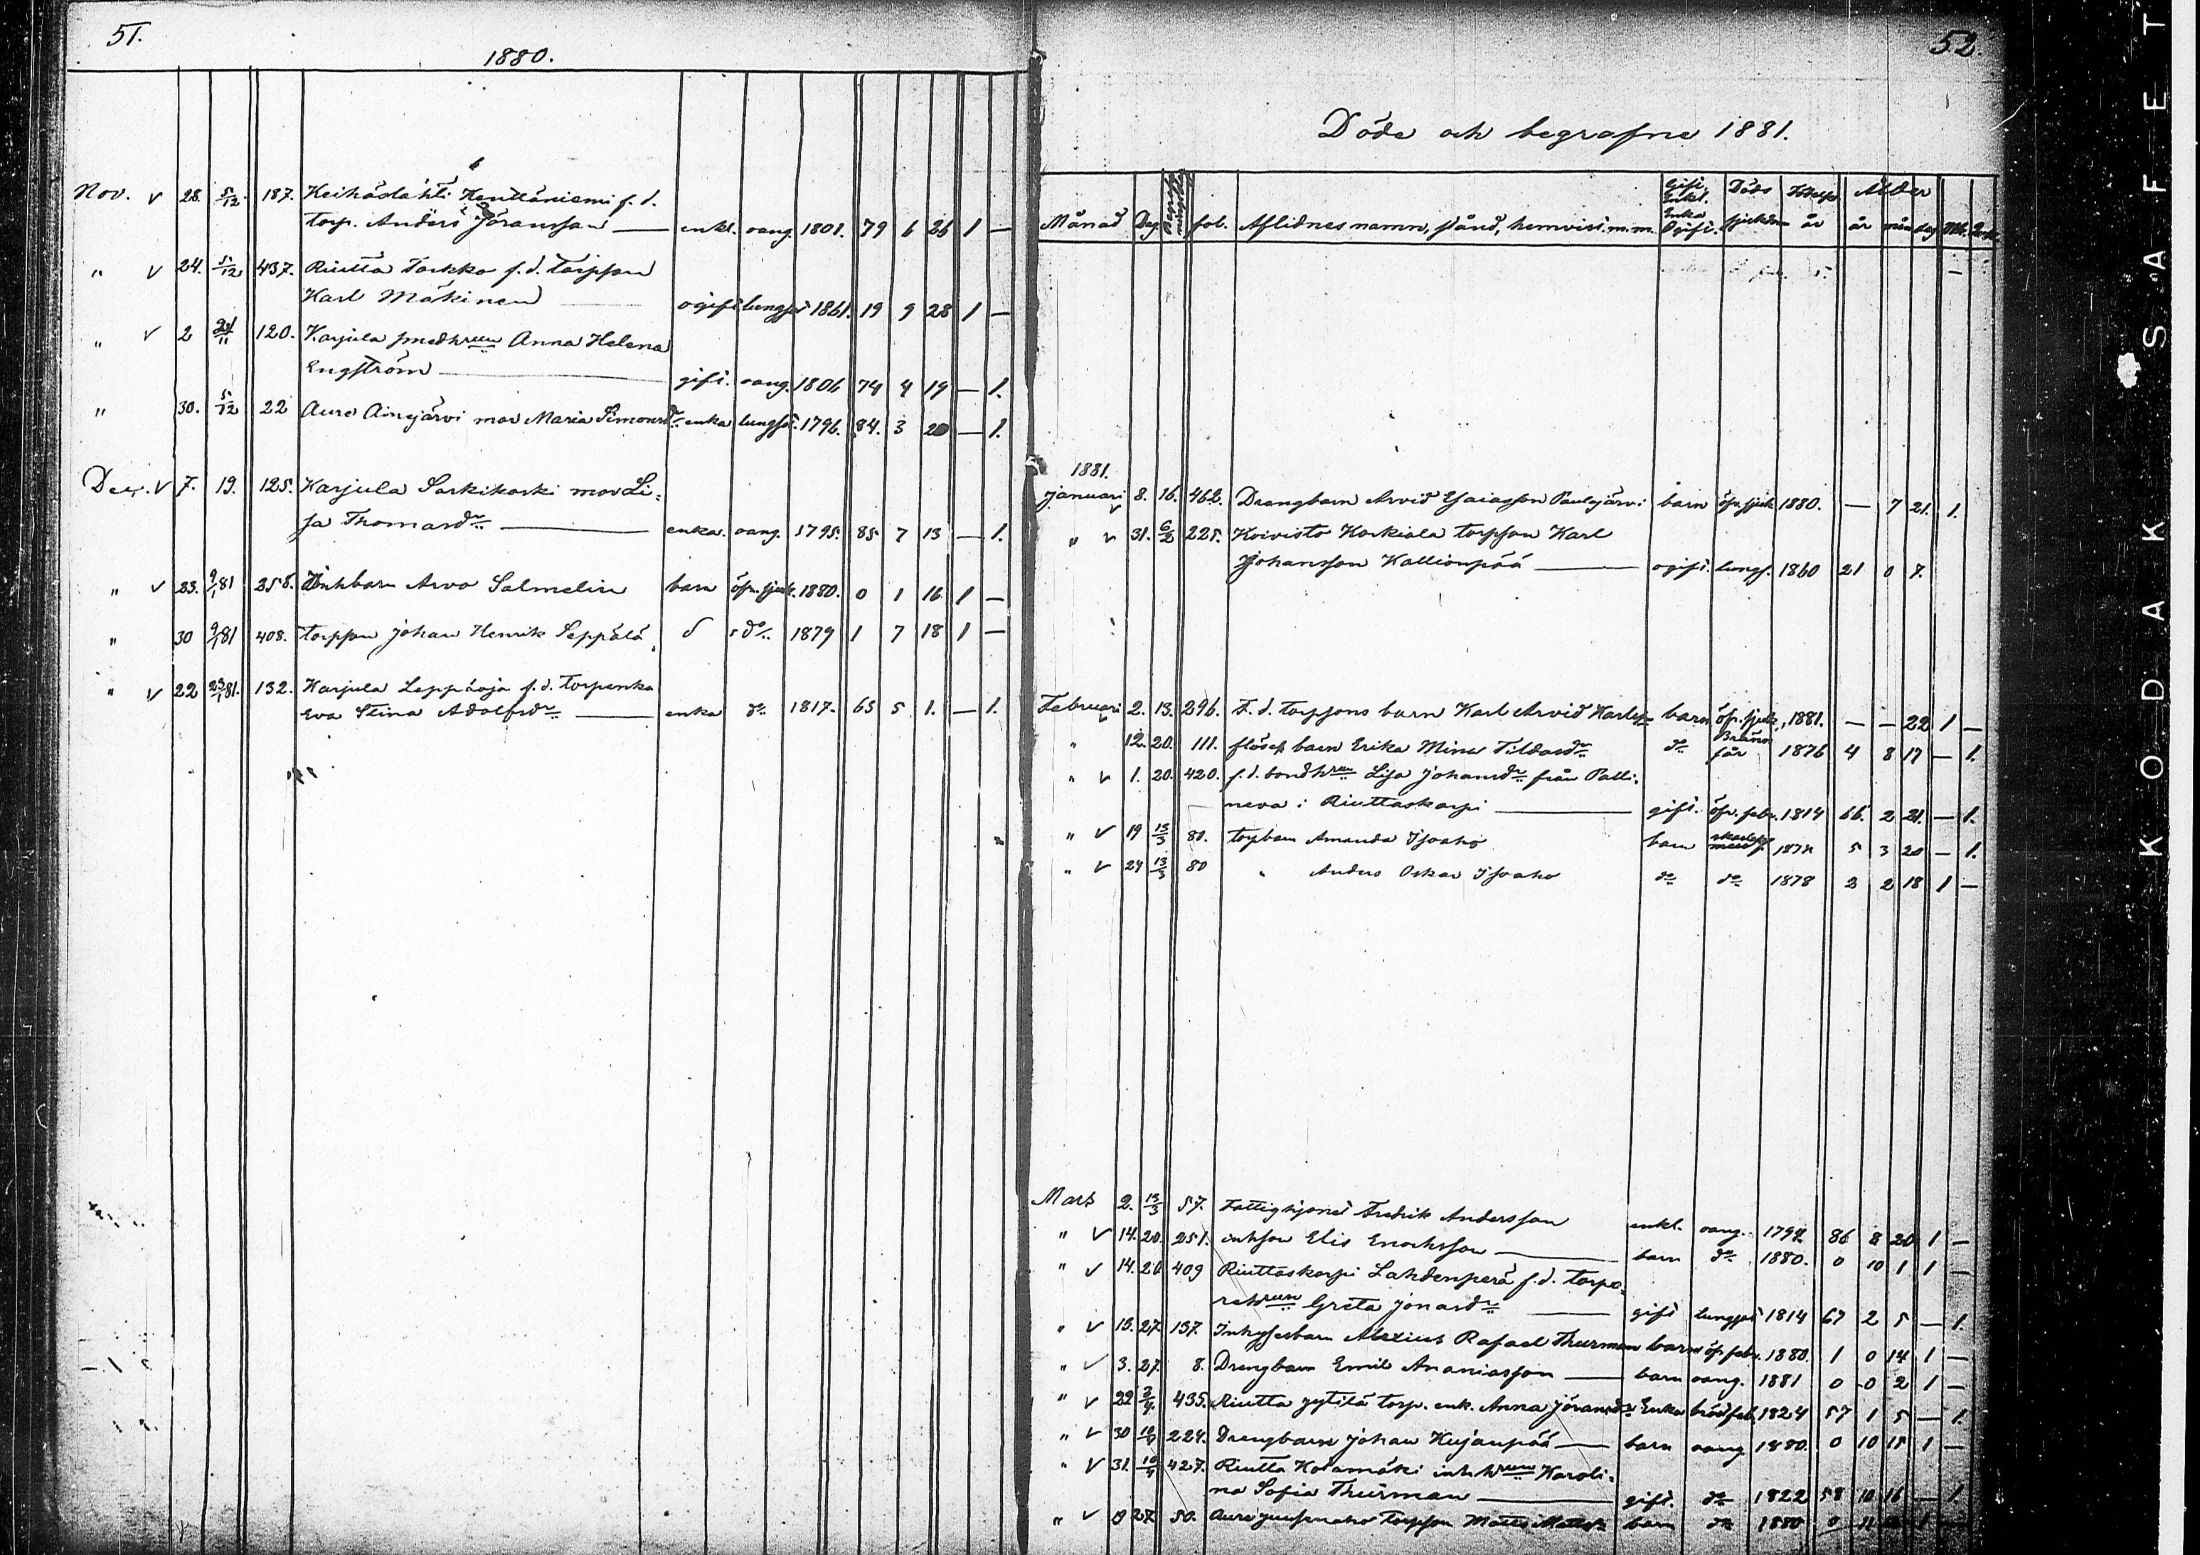 51.
1880.
Nov. v 28. 5/12. 187. Keihäslahti Henttäniemi f.d.
torp. Anders Jöransson — enkl. oang. 1801. 79 6 26 1 —
" v 24. 5/12 437. Riutta Torkko f.d. torpson
Karl Mäkinen — ogift lungsot 1861. 19 9 28 1 —
" v 2 21/11 120. Karjula smedhrun Anna Helena
Engström — gift. oang. 1806 74 4 19 — 1.
" 30. 5/12 22 Aure Ainesjärvi mor Maria Simonsdr enka lungsot. 1796. 84. 3 20 — 1.
Dec. v 7. 19. 125. Karjula Sarkikoski mor Li-
sa Thomasdr — enka. oang. 1795. 85 7 13 — 1.
" v 23. 9/1 81 258. Inhbarn Arvo Salmelin barn öfr. sjuk. 1880. 0 1 16 1 —
" 30 9/1 81 408. torpson Johan Henrik Seppälä d do 1879 1 7 18 1 —
" v 22 23/1 81. 132. Karjula Leppäoja f.d. torpenka
Eva Stina Adolfsdr — enka do 1817. 63 5 1. — 1.
52.
Döde och begrafne 1881.
Månad Dag fol. Aflidnes namn, stånd, hemvist m.m. Gift, Enkl. Enka Ogift. Döds sjukdom Födelse år Ålder år mån dag Mk. Qvk.
1881.
Januari v 8. 16. 462. Drengbarn Arvid Esaiasson Paulajärvi barn öfr. sjuk 1880. — 7 21. 1.
" v 31. 6/2 225. Koivisto Korkiala torpson Karl
Johansson Kallionpää — ogift. lungs. 1860 21 0 7.
Februari v 2. 13. 296. F.d. torpsons barn Karl Arvid barn öfr. sjuk. 1881. — — 22 1 —
" 12. 20. 111. barn Erika Mina Tildasdr do Bränn sår 1876 4 8 17 — 1.
" v 1. 20. 420. f.d. bondhrun Lisa Johansdr från Palli-
neva i Riuttaskorpi — gift. öfr. febr. 1814 66. 2 21. — 1.
" v 19 13/3 80. torpbarn Amanda Isoaho barn 5 3 20 — 1.
" v 24 13/3 80 " Anders Oskar Isoaho do do 1878 2 2 18 1 —
Mars 2. 13/3 57. Fattighjonet Fredrik Andersson enkl. oang. 1794. 86 8 20 1 —
" v 14. 20. 251. inhson Elis Enochsson — barn do 1880. 0 10 1 1 —
" v 14. 20 409 Riuttaskorpi Lahdenperä f.d. torpa-
rehrun Greta Jonasdr — gift lungsot 1814 67 2 5 — 1.
" v 13. 27. 137. Inhysesbarn Alexius Rafael Thurman barn öfr. febr. 1880. 1 0 14 1 —
" v 3. 27. 8. Drengbarn Emil Ananiasson — barn oang. 1881 0 0 2 1 —
" v 22 3/4. 435. Riutta Jytilä torp. enk. Anna Jöransdr Enka bröstfeb. 1824 57 1 5 — 1.
" v 30 10/4 224. Drengbarn Johan Kujanpää — barn oang 1880. 0 10 15 1 —
" v 31. 10/4 427. Riutta inhhrun Karoli-
na Sofia Thurman — gift. do 1822 58 10 16 — 1.
" v 27. 50. Aure torpson barn do 1880 0
KODAK SAFET